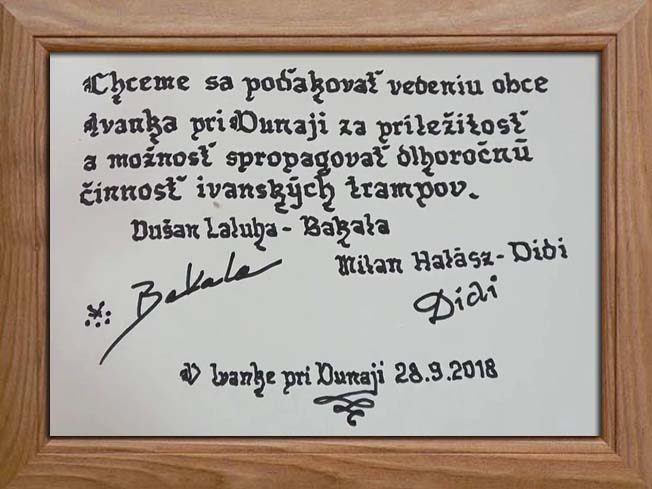 Chceme sa poďakovať vedeniu obce
Ivanka pri Dunaji za príležitosť
a možnosť spropagovať dlhoročnú
činnosť ivanských trampov.
Dušan Laluha - Bakala
Milan Halász - Didi
Bakala
Didi
V Ivanke pri Dunaji 28.9.2018